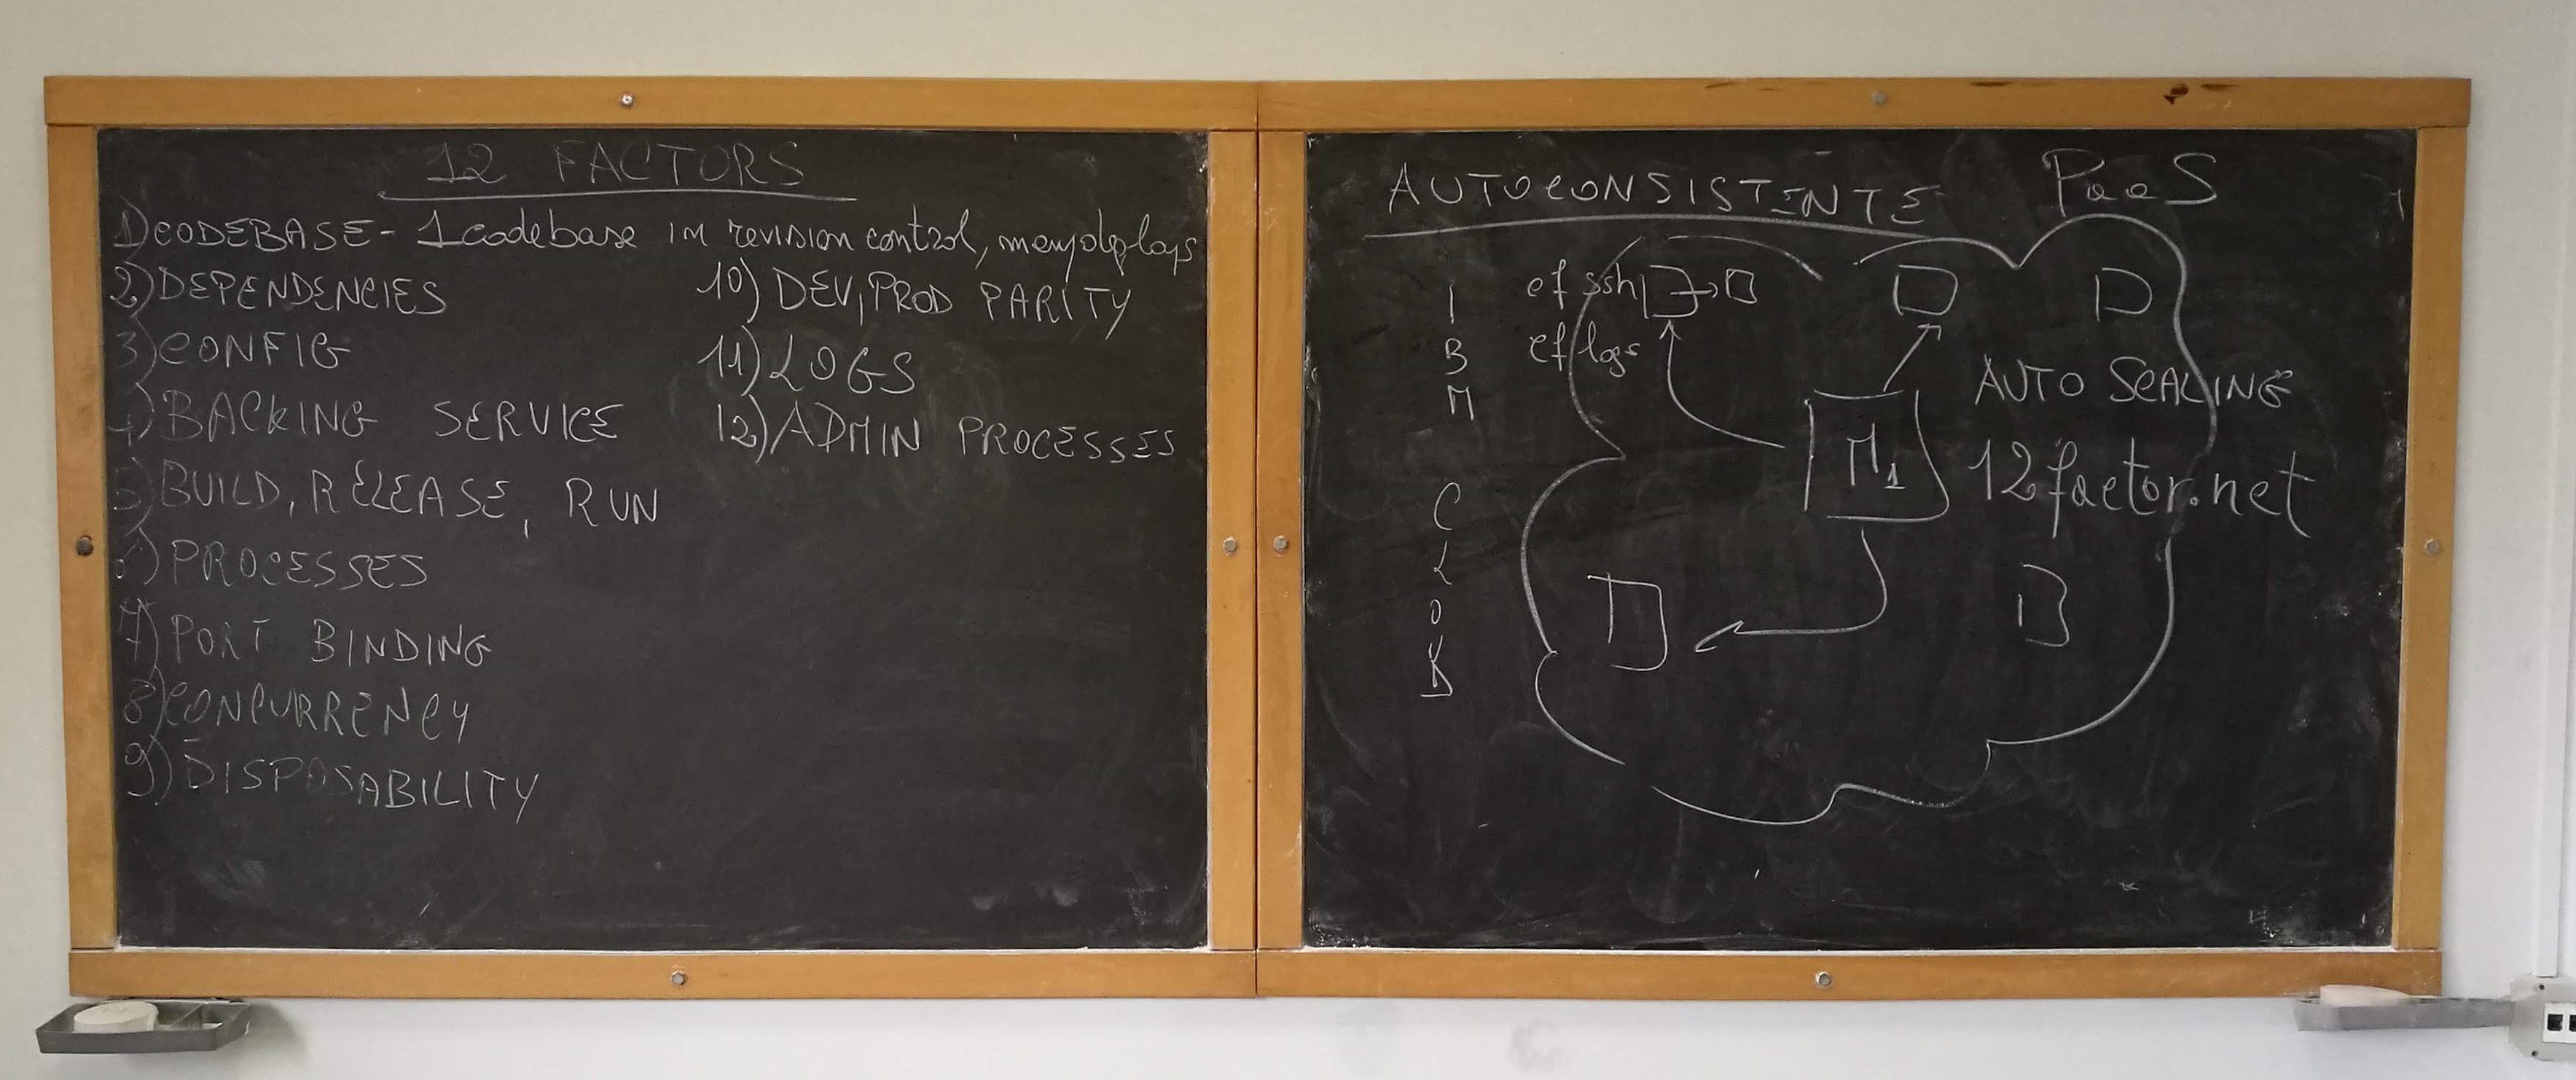 12 FACTORS
1) CODEBASE - 1 codebase in revision control, many deploys
2) DEPENDENCIES
3) CONFIG
4) BACKING SERVICE
5) BUILD, RELEASE, RUN
6) PROCESSES
7) PORT BINDING
8) CONCURRENCY
9) DISPOSABILITY
10) DEV, PROD PARITY
11) LOGS
12) ADMIN PROCESSES
AUTOCONSISTENTE
PaaS
IBM
CLOUD
cf ssh
cf logs
M1
AUTO SCALING
12factor.net